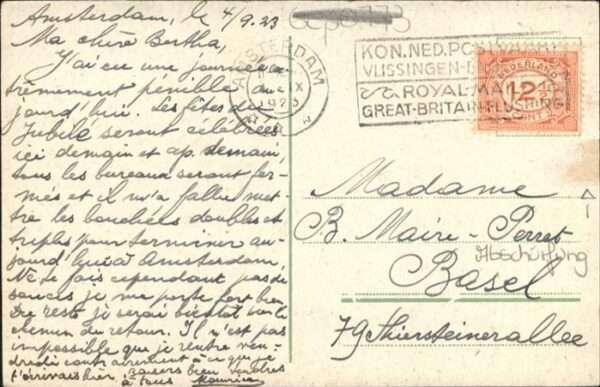 Amsterdam, le 4/9.23
Ma chère Bertha,
J'ai eu une journée ex
trêmement pénible au
jourd'hui. Les fêtes de
Jubilé seront célébrées
ici demain et ap. demain,
tous les bureaux seront fer-
més et il m'a fallu met
tre les bouchées doubles et
triples pour terminer au-
jourd'hui à Amsterdam.
Ne te fais cependant pas de
soucis je me porte fort bien.
Du reste je serai bientôt sur le
chemin du retour. Il n'est pas
impossible que je rentre ven-
dredi contrairement à ce que je
t'écrivais hier. baisers bien tendres
à tous Maurice
AMSTERDAM
IX
1923
KON. NED. POSTVAART
VLISSINGEN-
ROYAL-MAIL
GREAT-BRITAIN-FLUSHING
NEDERLAND
12½
CENT
Madame
B. Maire-Perret
Abschürfung
Basel
79 Thiersteinerallee